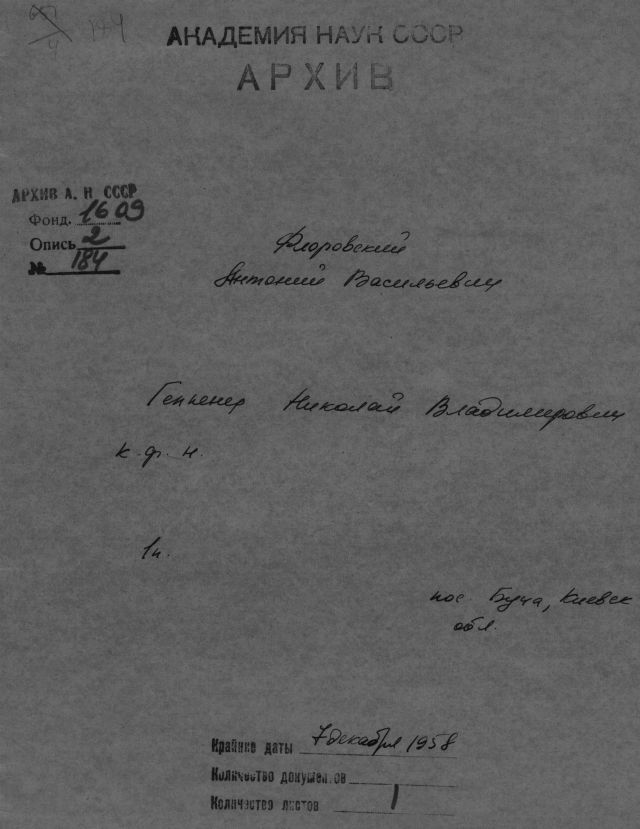 144
АКАДЕМИЯ НАУК СССР
АРХИВ
АРХИВ А. Н. СССР
Фонд. 1609
Опись 2
№ 184
Флоровский
Антоний Васильевич
Николай Владимирович
к. ф. н.
1п.
пос. Буча, Киевск
обл.
Крайние даты 7 декабря 1958
Количество документов
Количество листов 1